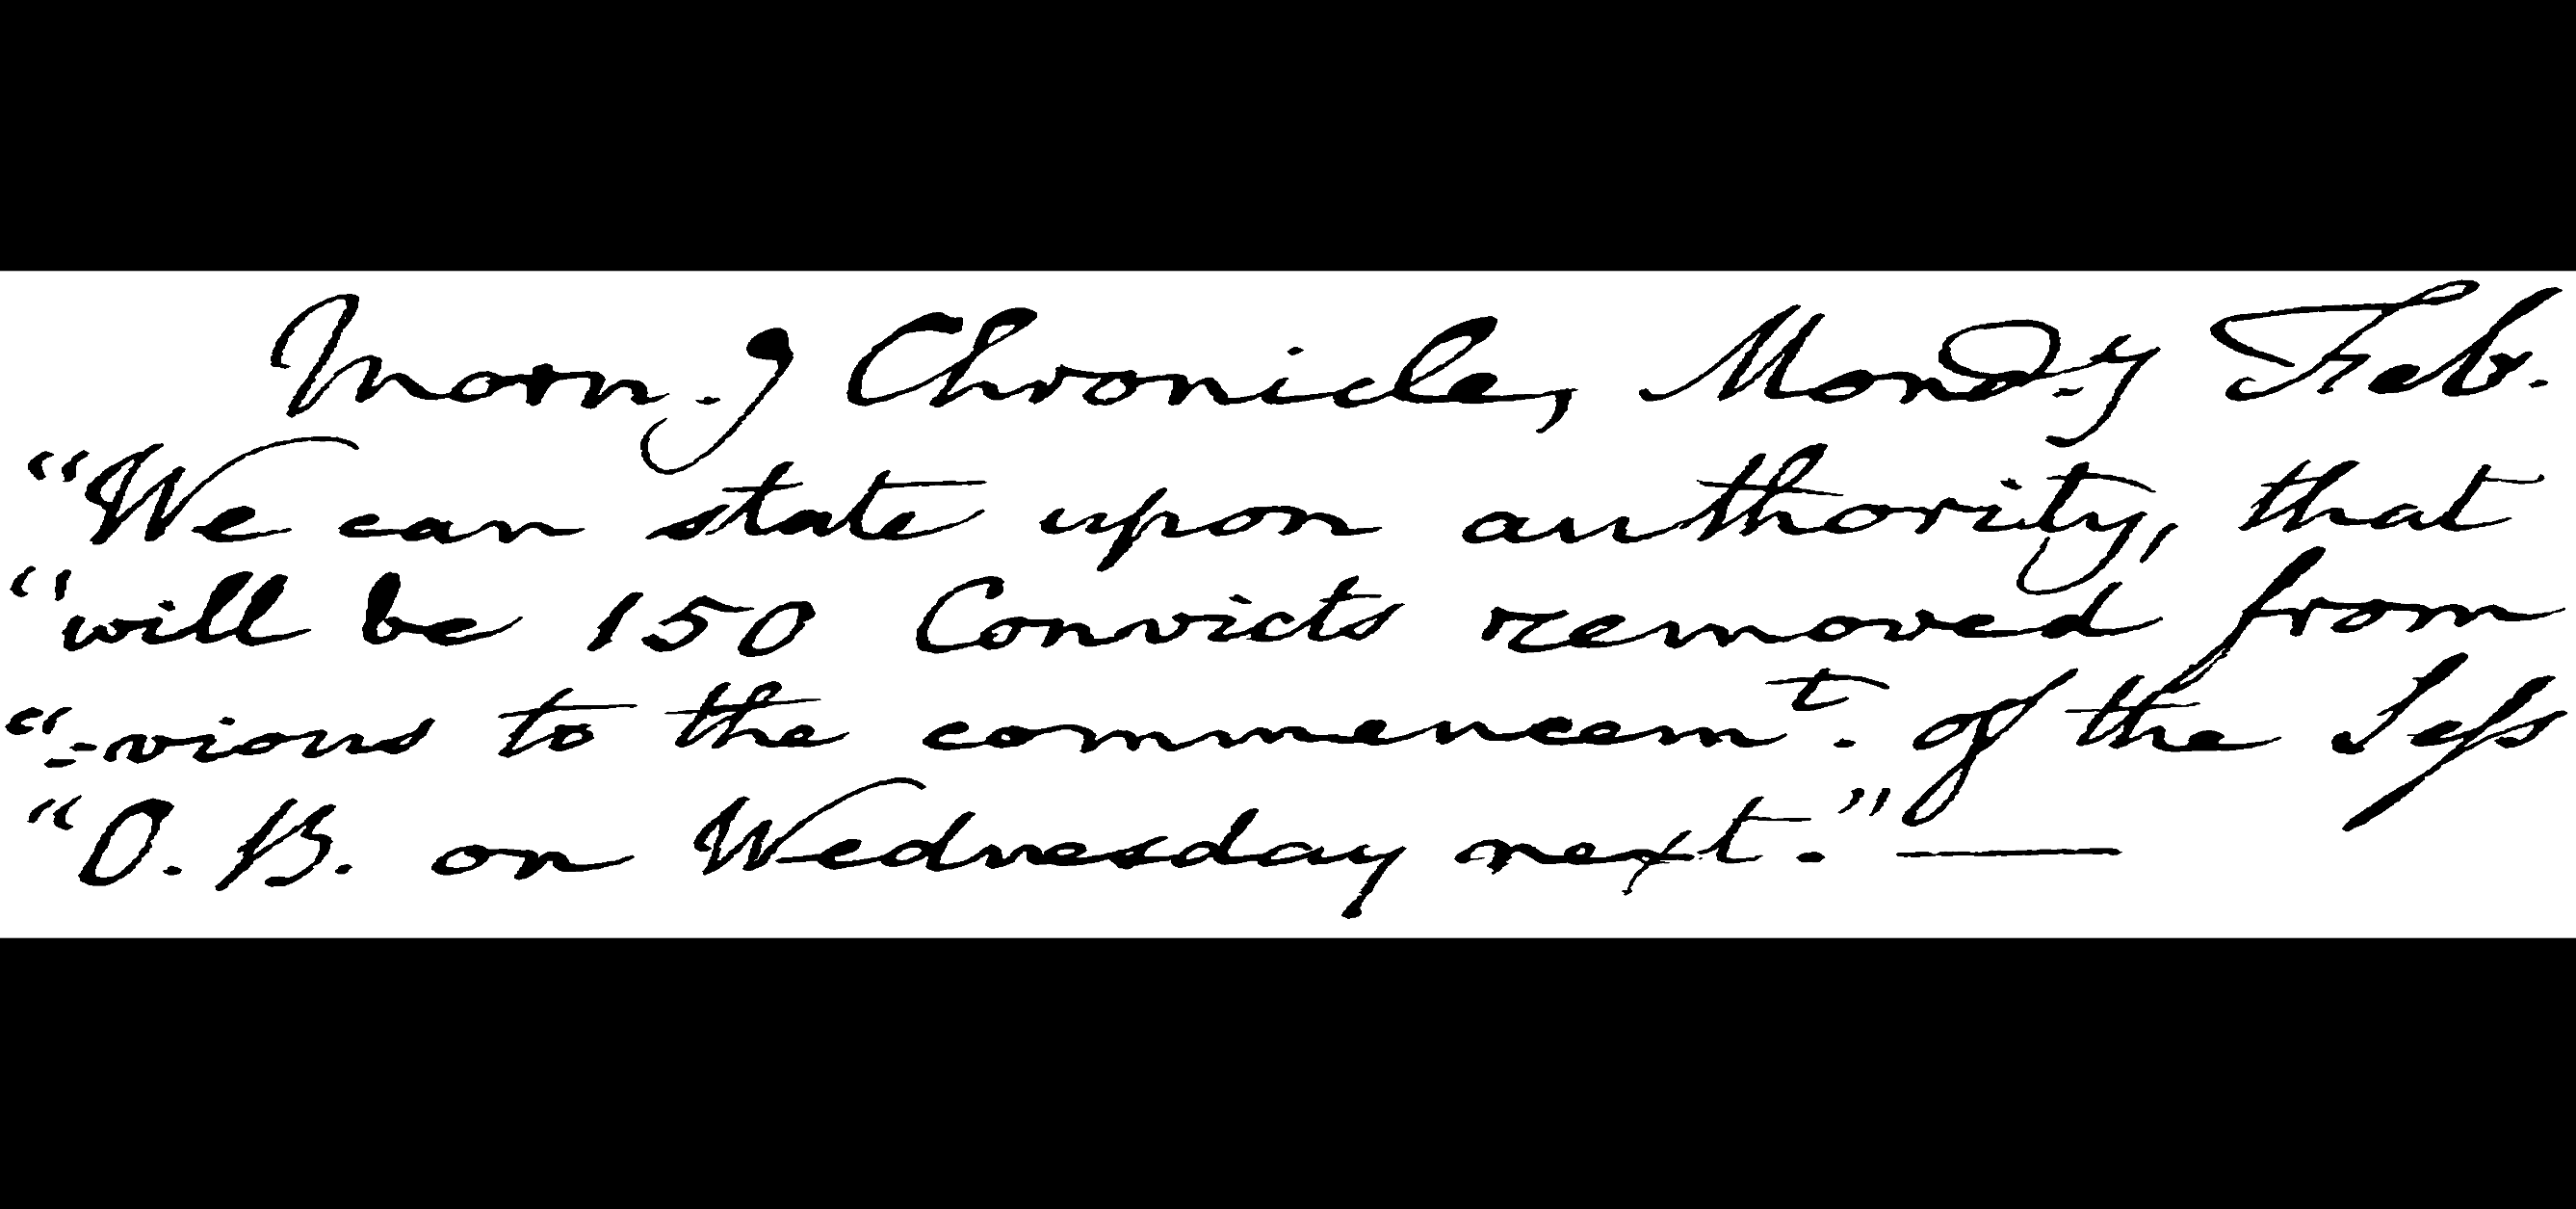 Morn.g Chronicle, Mond.y Feb.
“We can state upon authority, that
“will be 150 Convicts removed from
“=vious to the commencem.t of the Sess
“O. B. on Wednesday next.” —